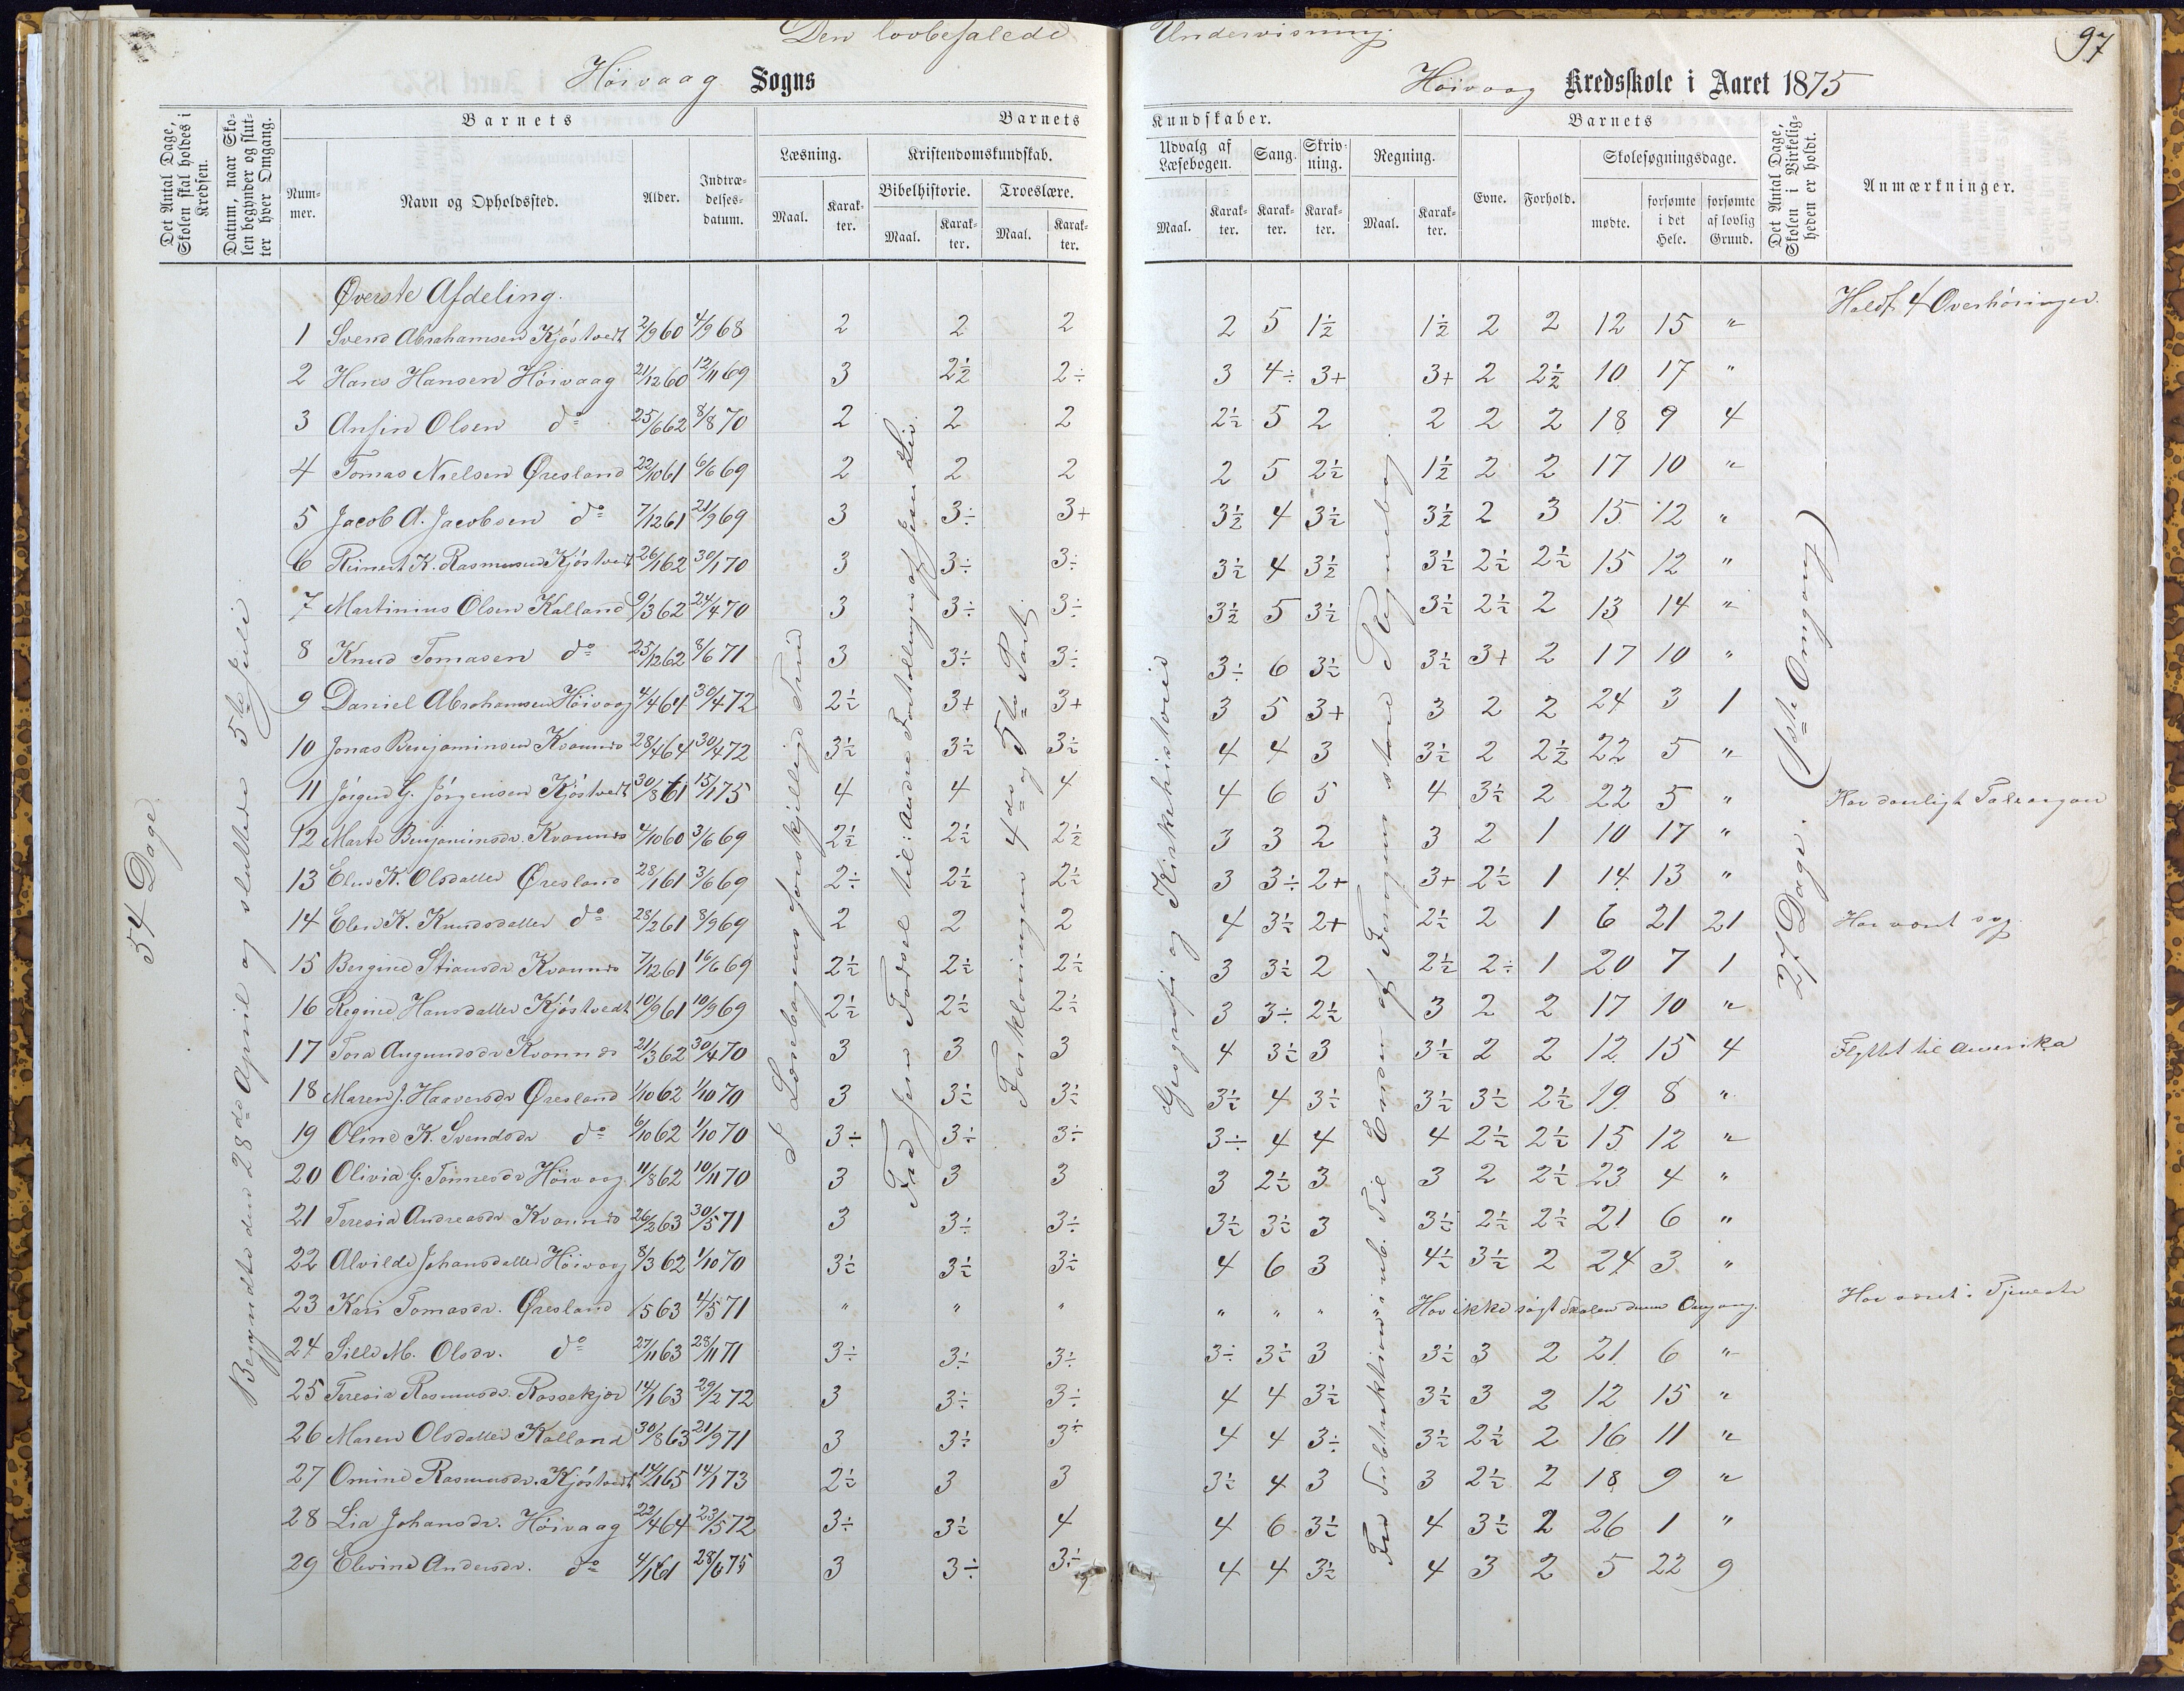 Den lovbefalede Undervisning.
97
Höivaag Sogns
Höivaag Kredsskole i Aaret 1875
Det Antal Dage, Skolen skal holdes i Kredsen.
Datum, naar Skolen begynder og slutter hver Omgang.
Barnets
Nummer.
Navn og Opholdssted.
Alder.
Indtrædelsesdatum.
Barnets
Læsning.
Maal.
Karakter.
Kristendomskundskab.
Bibelhistorie.
Maal.
Karakter.
Troeslære.
Maal.
Karakter.
Kundskaber.
Udvalg af Læsebogen.
Maal.
Karakter.
Sang.
Karakter.
Skrivning.
Karakter.
Regning.
Maal.
Karakter.
Barnets
Evne.
Forhold.
Skolesøgningsdage.
mødte.
forsømte i det Hele.
forsømte af lovlig Grund.
Det Antal Dage, Skolen i Virkeligheden er holdt.
Anmærkninger.
54 Dage
Begyndte den 28de April og sluttede 5te Juli
I Læsebogens forskjellige
Fra Jesu Fødsel til: Andre Fortællinger af Jesu Liv.
Forklaringen 4de og 5te Part
Geografi og Kirkehistorie
Fra Subtraktion i ub. Til Enden af Fragens store Regnebog
27 Dage. (1ste Omgang)
Øverste Afdeling.
Holdt 4 Overhöringer.
1 Svend Abrahamsen Kjöstvedt 2/9 60 4/9 68 2 2 2 2 5 1½ 1½ 2 2 12 15 "
2 Hans Hansen Höivaag 21/12 60 12/11 69 3 2½ 2÷ 3 4÷ 3+ 3+ 2 2½ 10 17 "
3 Ansin Olsen do 25/6 62 8/8 70 2 2 2 2½ 5 2 2 2 2 18 9 4
4 Tomas Nielsen Øresland 22/10 61 6/6 69 2 2 2 2 5 2½ 1½ 2 2 17 10 "
5 Jacob A. Jacobsen do 7/12 61 21/9 69 3 3÷ 3+ 3½ 4 3½ 3½ 2 3 15 12 "
6 Reinert K. Rasmussen Kjöstvedt 26/1 62 30/1 70 3 3÷ 3÷ 3½ 4 3½ 3½ 2½ 2½ 15 12 "
7 Martinius Olsen Kalland 9/3 62 24/4 70 3 3÷ 3÷ 3½ 5 3½ 3½ 2½ 2 13 14 "
8 Knud Tomasen do 25/12 62 8/6 71 3 3÷ 3÷ 3÷ 6 3½ 3½ 3+ 2 17 10 "
9 Daniel Abrahamsen Höivaag 4/4 64 30/4 72 2½ 3+ 3+ 3 5 3+ 3 2 2 24 3 1
10 Jonas Benjaminsen Kvannes 28/4 64 30/4 72 3½ 3½ 3½ 4 4 3 3½ 2 2½ 22 5 "
11 Jörgen G. Jörgensen Kjöstvedt 30/8 61 15/1 75 4 4 4 4 6 5 4 3½ 2 22 5 " Har daarligt Taleorgan
12 Marte Benjaminsdr. Kvannes 4/10 60 3/6 69 2½ 2½ 2½ 3 3 2 3 2 1 10 17 "
13 Elen K. Olsdatter Øresland 28/1 61 3/6 69 2÷ 2½ 2½ 3 3÷ 2+ 3+ 2½ 1 14 13 "
14 Elen K. Knudsdatter do 28/2 61 8/9 69 2 2 2 4 3½ 2+ 2½ 2 1 6 21 21 Har været syg.
15 Bergine Stiansdr Kvannes 7/12 61 16/6 69 2½ 2½ 2½ 3 3½ 2 2½ 2÷ 1 20 7 1
16 Regine Hansdatter Kjöstvedt 10/9 61 10/9 69 2½ 2½ 2½ 3 3÷ 2½ 3 2 2 17 10 "
17 Tora Augundsdr Kvannes 21/3 62 30/4 70 3 3 3 4 3½ 3 3½ 2 2 12 15 4 Flyttet til Amerika
18 Maren J. Haaversdr Øresland 1/10 62 1/10 70 3 3½ 3½ 3½ 4 3½ 3½ 3½ 2½ 19 8 "
19 Oline K. Svendsdr do 6/10 62 1/10 70 3÷ 3÷ 3÷ 3÷ 4 4 4 2½ 2½ 15 12 "
20 Olivia G. Tönnesdr Höivaag 11/8 62 10/11 70 3 3 3 3 2½ 3 3 2 2½ 23 4 "
21 Teresia Andreasdr Kvannes 26/2 63 30/5 71 3 3÷ 3÷ 3½ 3½ 3 3½ 2½ 2½ 21 6 "
22 Alvilde Johansdatter Höivaag 8/3 62 1/10 70 3½ 3½ 3½ 4 6 3 4½ 3½ 2 24 3 "
23 Kari Tomasdr. Øresland 1563 4/5 71 " " " " " " Har ikke sögt Skolen denne Omgang. Har været i Tjeneste
24 Sille M. Olsdr. do 27/11 63 28/11 71 3÷ 3÷ 3÷ 3÷ 3½ 3 3½ 3 2 21 6 "
25 Teresia Rasmusdr. Rossekjær 14/1 63 29/2 72 3 3÷ 3÷ 4 4 3½ 3½ 3 2 12 15 "
26 Maren Olsdatter Kalland 30/8 63 21/9 71 3 3÷ 3÷ 4 4 3÷ 3½ 2½ 2 16 11 "
27 Omine Rasmusdr. Kjöstvedt 14/1 65 14/1 73 2½ 3 3 3½ 4 3 3 2½ 2 18 9 "
28 Lia Johansdr. Höivaag 22/4 64 23/5 72 3÷ 3½ 4 4 6 3½ 4 3½ 2 26 1 "
29 Elevine Andersdr. do 4/1 61 28/6 75 3 3÷ 3÷ 4 4 3½ 4 3 2 5 22 9